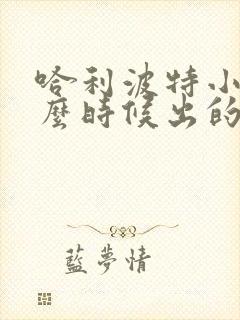 哈利波特小
麼時候出的
藍夢情